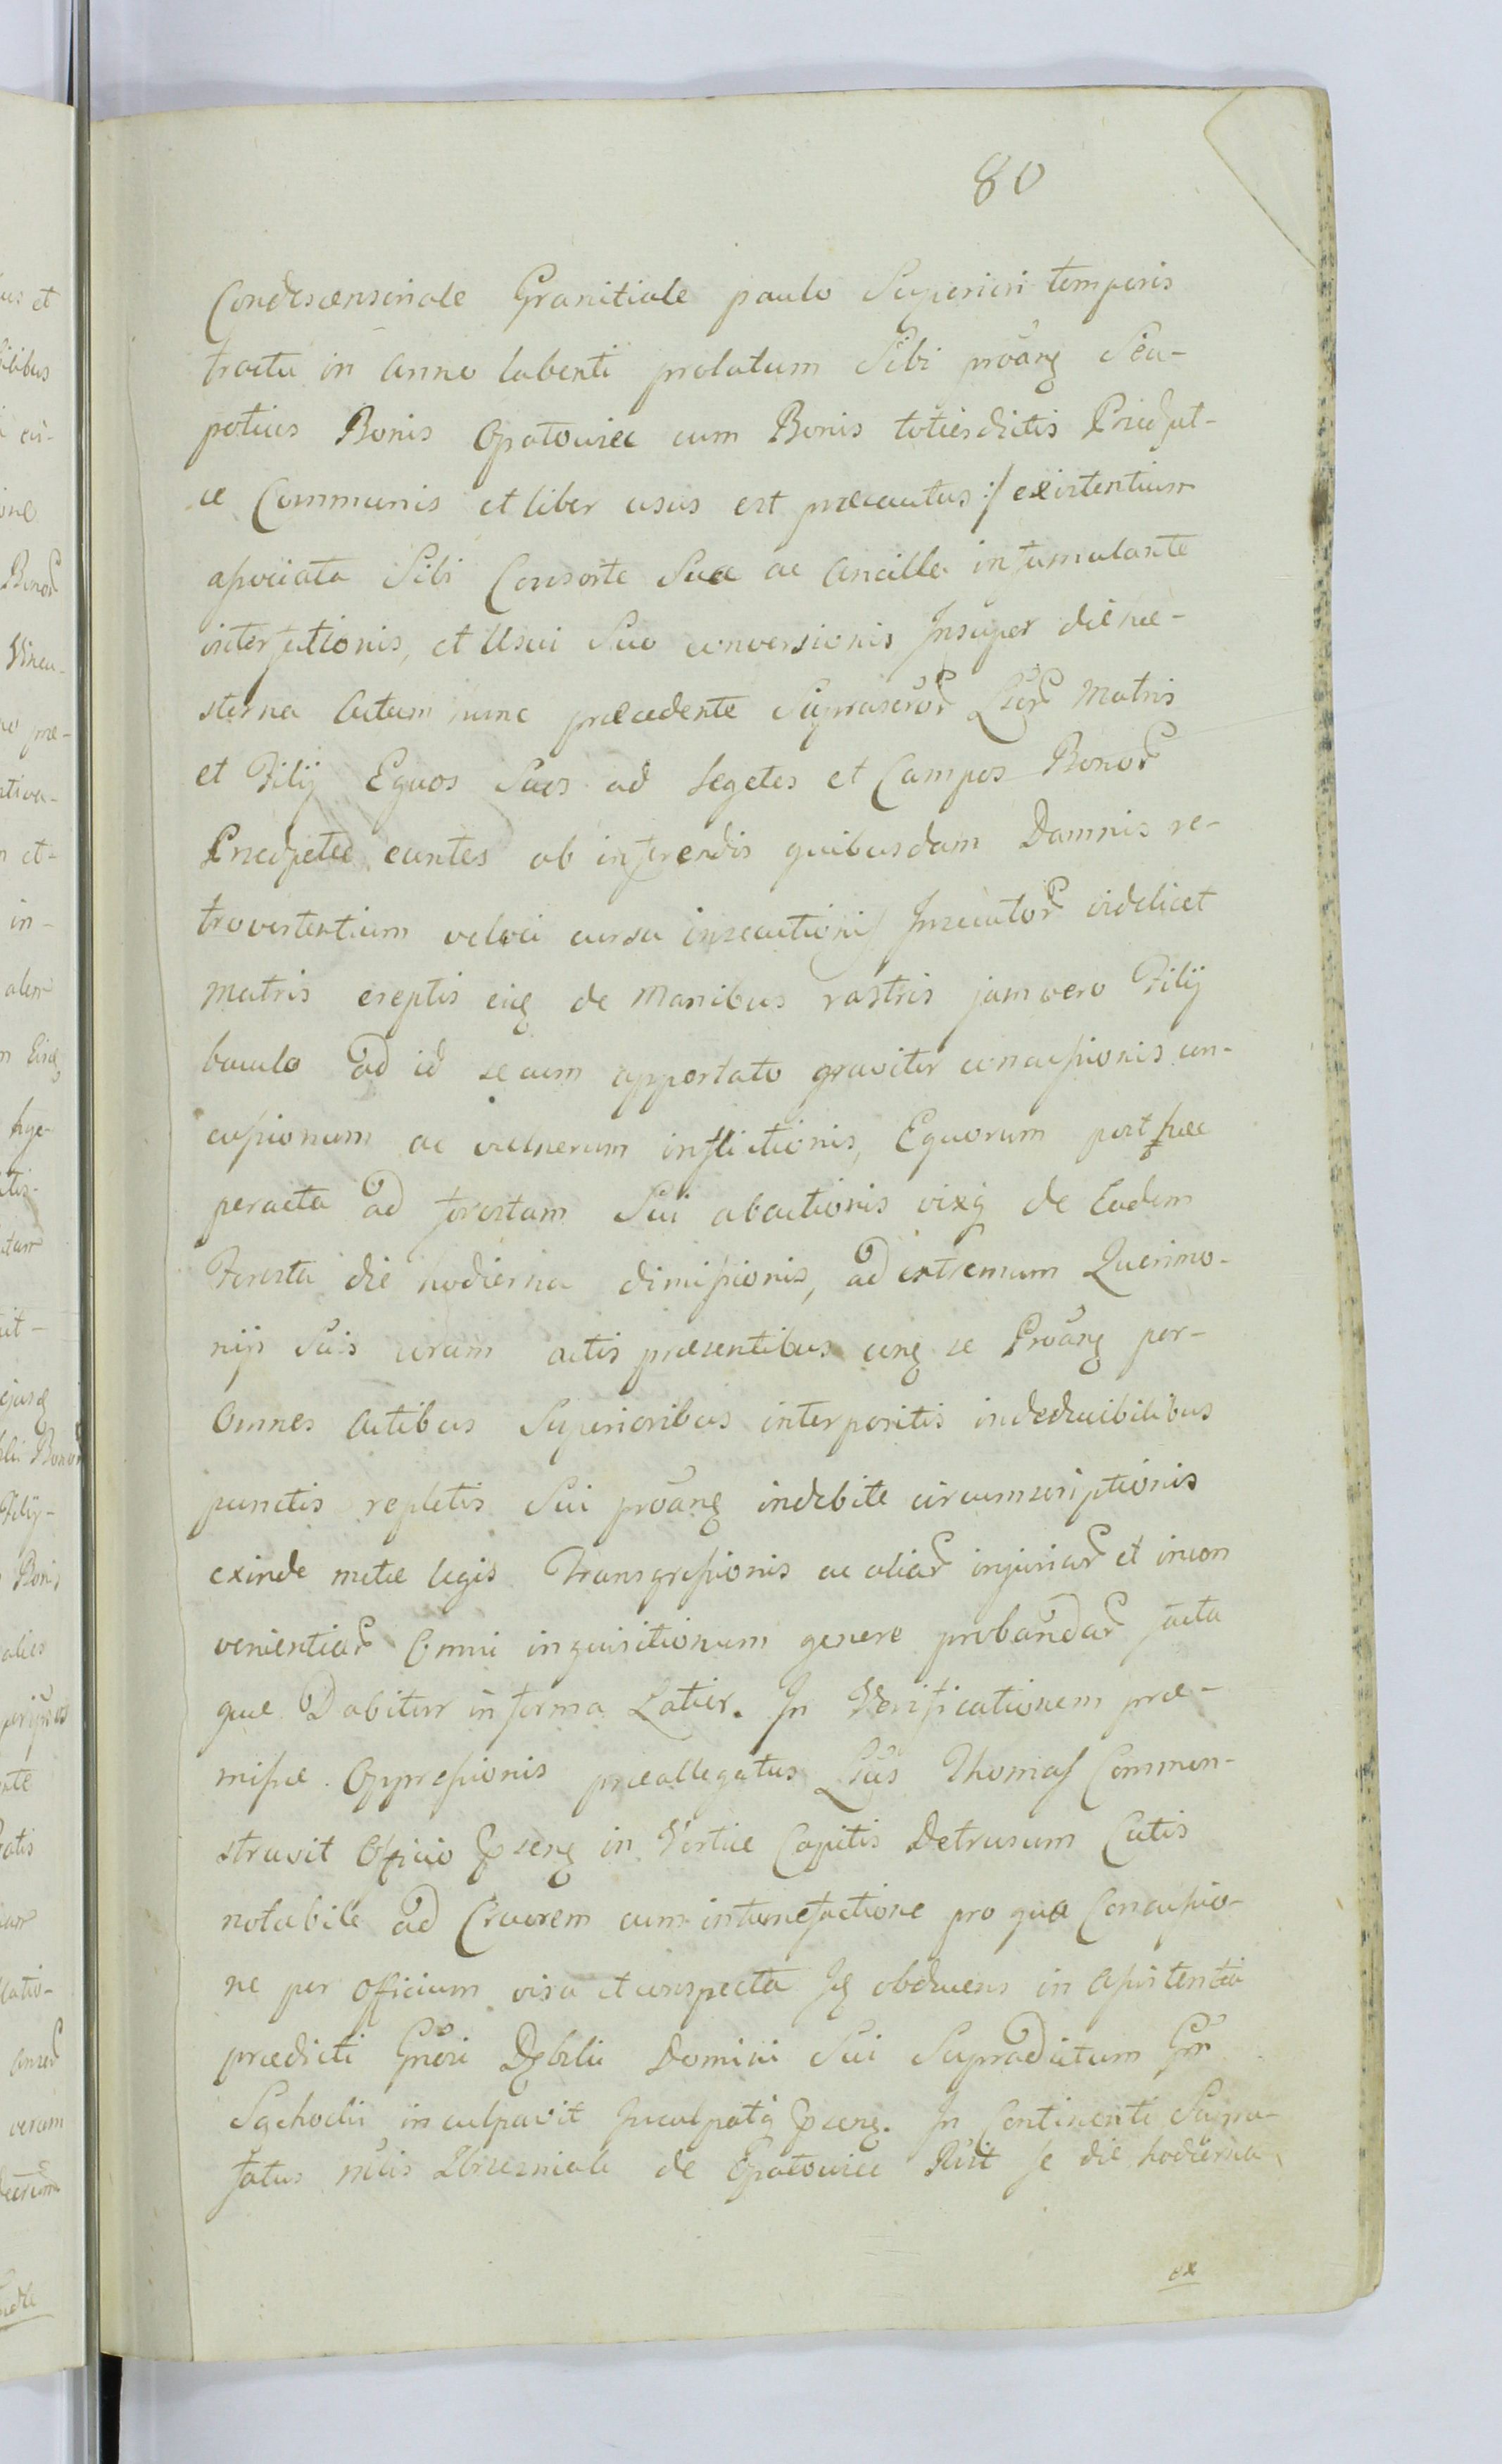 80
Condescensionale Granitiale paulo Superiori temporis
tractu in Anno labenti prolatum Sibi proãng Seu-
potius Bonis Opatowiec cum Bonis totiesdictis
ae Communis et liber usus est praecautus :/ existentium
associata Sibi Consorte Sua ac Ancilla infamulante
interfectionis, et Usui Suo conversionis Insuper die he-
sterna Actum nunc praecedente Matris
et Filij Equos Suos ad segetes et Campos Bonor
euntes ab inferendis quibusdam Damnis re-
trovertentium veloci cursu insecutionis Insecutor videlicet
Matris ereptis de Manibus rastris jam vero Filij
baculo ad id secum apportato graviter concussionis con-
cussionum ac vulnerum inflictionis, Equorum post haec
peracta ad forestam Sui abactionis vixq de Eadem
Foresta die hodierna dimissionis, ad extremum Querimo-
nijs Suis coram actis praesentibus se Proãng per-
Omnes Actibus Superioribus interpositis indeducibilibus
punctis repletis Sui proãng indebite circumscriptionis
exinde metae legis Transgressionis ac aliar injuriar et incon
venientiar Omni inquisitionum genere probandar facta
que Dabitur in forma Latior. In Verificationem prae-
missae Oppressionis praeallegatus Thomas Common-
stravit Officio in Vertice Capitis Detrusum Cutis
notabile ad Cruorem cum intumefactione pro qua Concussio-
ne per Officium visa et conspecta obducens in Assistentia
praedicti Domini Sui Supradictum
inculpavit Inculpatq In Continenti Supra-
fatus de Opatowiec se die hodierna
ex